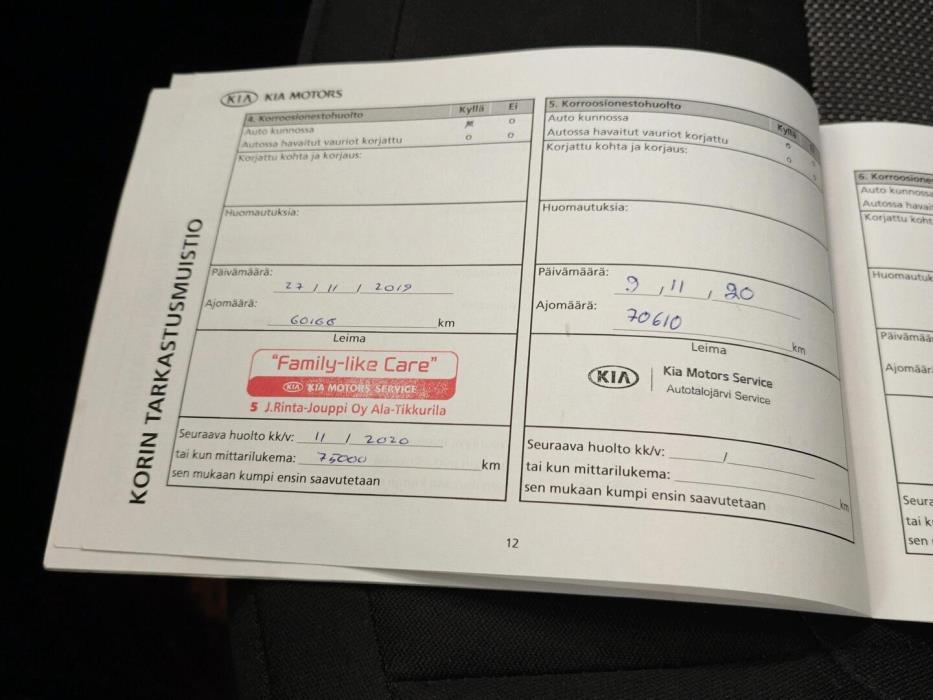 KIA KIA MOTORS
KORIN TARKASTUSMUISTIO
4. Korroosionestohuolto Kyllä Ei
Auto kunnossa
Autossa havaitut vauriot korjattu
Korjattu kohta ja korjaus:
Huomautuksia:
Päivämäärä:
27 / 11 / 2019
Ajomäärä:
60166 km
Leima
"Family-like Care"
KIA KIA MOTORS SERVICE
5 J.Rinta-Jouppi Oy Ala-Tikkurila
Seuraava huolto kk/v: 11 / 2020
tai kun mittarilukema: 75000 km
sen mukaan kumpi ensin saavutetaan
5. Korroosionestohuolto
Kyllä
Auto kunnossa
Autossa havaitut vauriot korjattu
Korjattu kohta ja korjaus:
Huomautuksia:
Päivämäärä:
9 / 11 / 20
Ajomäärä:
70610 km
Leima
KIA Kia Motors Service
Autotalojärvi Service
Seuraava huolto kk/v: /
tai kun mittarilukema: km
sen mukaan kumpi ensin saavutetaan
12
6. Korroosione
Auto kunnossa
Autossa havai
Korjattu koht
Huomautuk
Päivämää
Ajomäär
Seura
tai k
sen